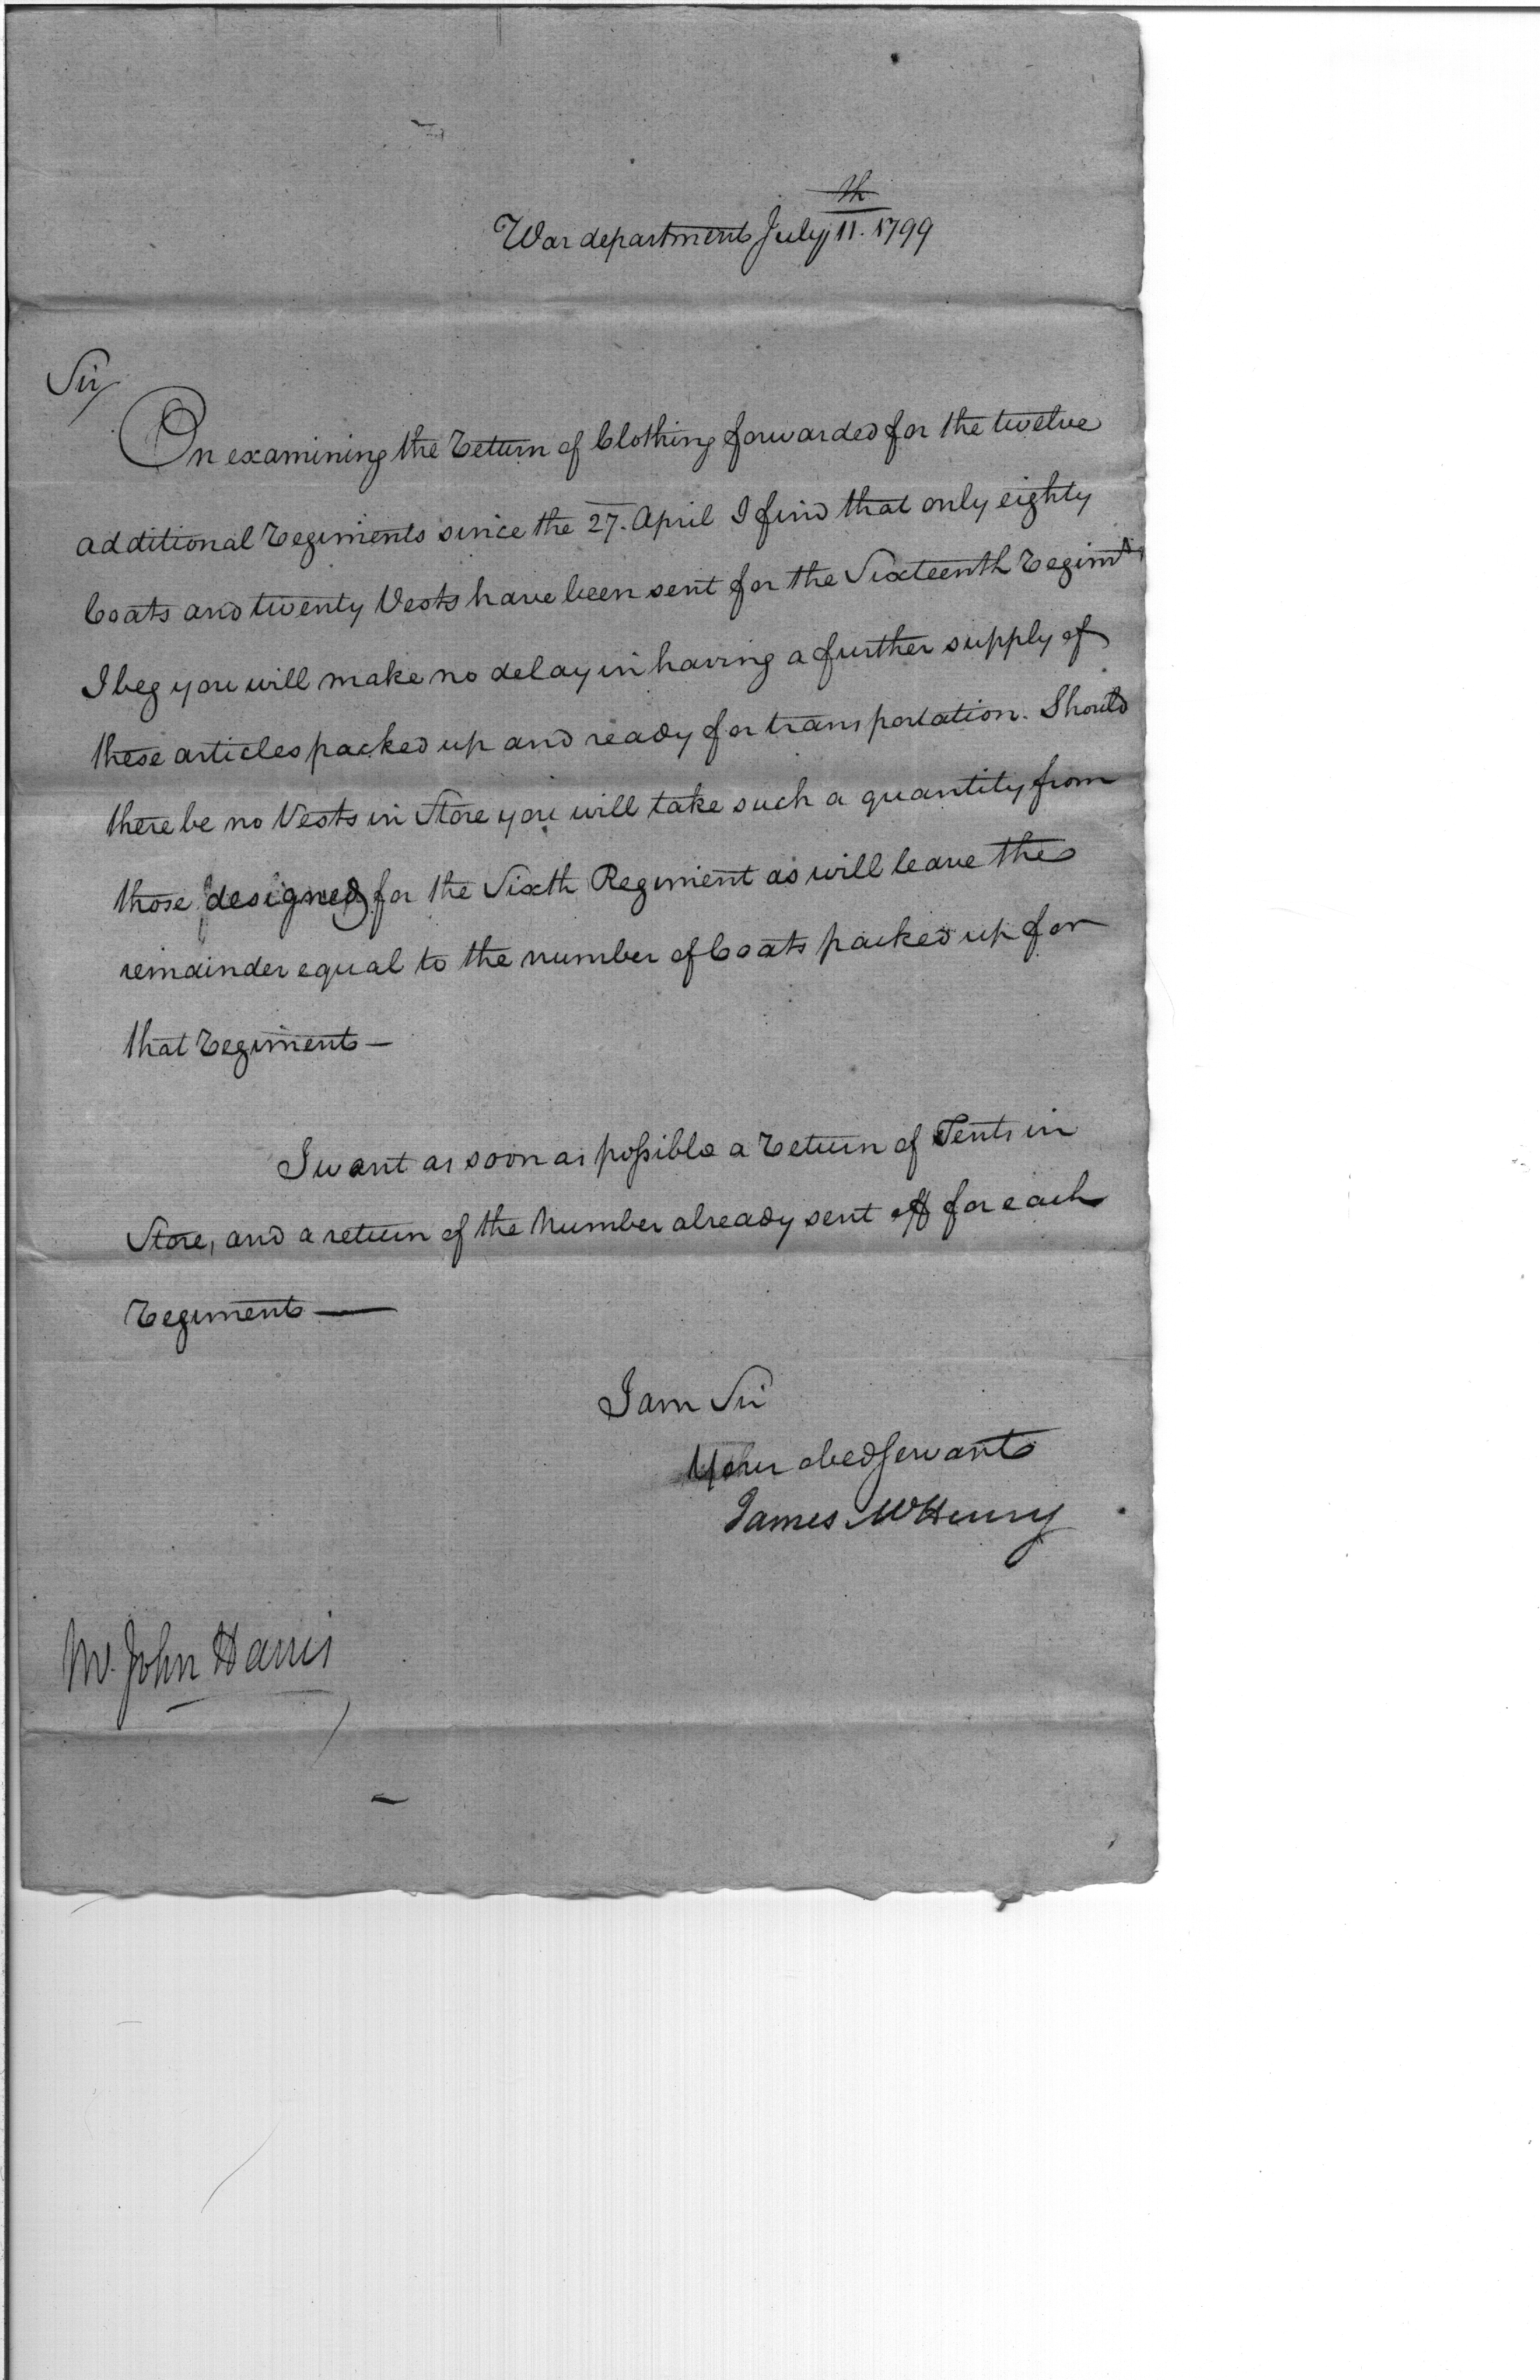 War department July 11th. 1799
Sir,
On examining the return of Clothing forwarded for the twelve
additional regiments since the 27. April I find that only eighty
Coats and twenty Vests have been sent for the Sixteenth regimt,
I beg you will make no delay in having a further supply of
these articles packed up and ready for transportation. Should
there be no Vests in Store you will take such a quantity from
those designed for the Sixth Regiment as will leave the
remainder equal to the number of Coats packed up for
that regiment —
I want as soon as possible a return of Tents in
Store, and a return of the Number already sent off for each
regiment —
I am Sir
Your obed servant
James McHenry
Mr. John Harris